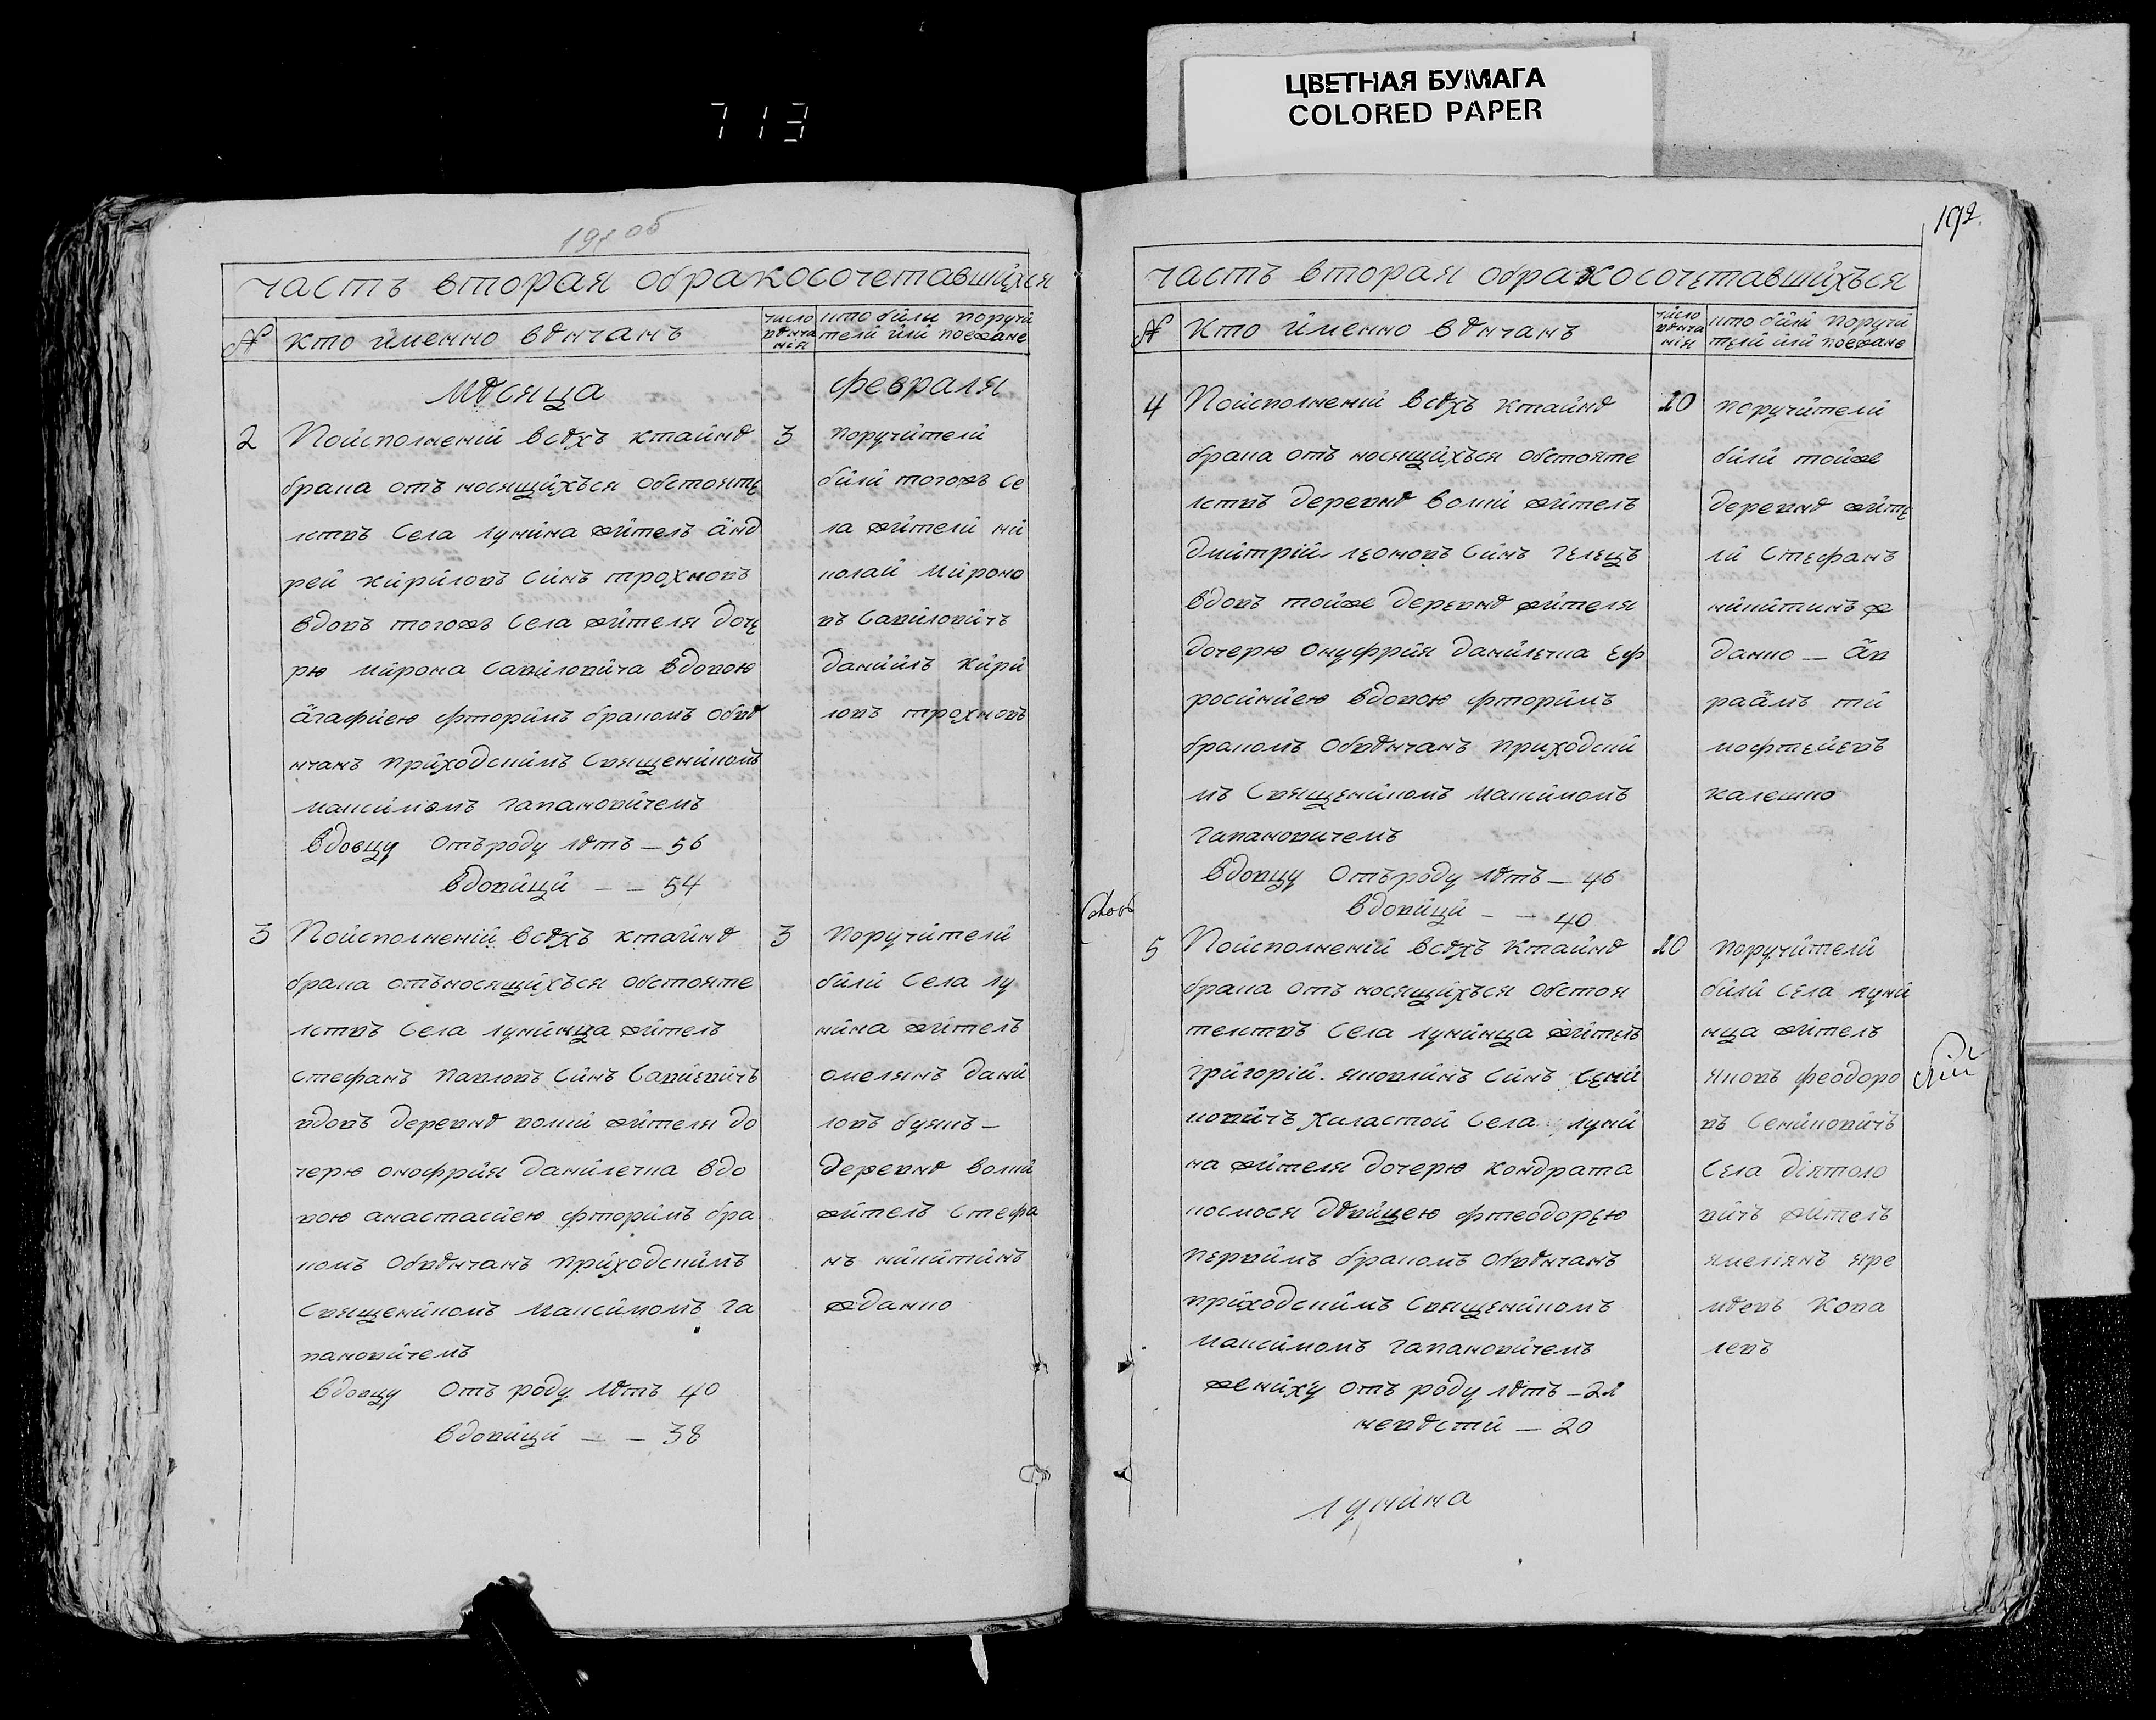 713
ЦВЕТНАЯ БУМАГА
COLORED PAPER
191 об
часть вторая обракосочетавшихся
№
кто именно вѣнчанъ
число вѣнча нія
кто били поручи тели или поезжане
Мѣсяца
февраля
2
Поисполнений всѣхъ ктайнѣ
брака отъ носящихъся обстояте
лствъ Села лунина житель Анд
рей кириловъ Синъ трохновъ
вдовъ тогожъ Села жителя доче
рю мирона Савиловича вдовою
Агафиею фторимъ бракомъ обвѣ
нчанъ приходскимъ Священикомъ
максимомъ гапановичемъ
вдовцу Отъроду лѣтъ — 56
вдовици — — 54
3
поручители
били тогожъ Се
ла жители ни
колай мироно
въ Савиловичъ
даниилъ кири
ловъ трохновъ
3
Поисполнений всѣхъ ктайнѣ
брака отъносящихъся обстояте
лствъ Села лунинца житель
стефанъ павловъ Синъ Савиевичъ
вдовъ деревнѣ волки жителя до
черю онофрия данилечка вдо
вою анастасиею фторимъ бра
комъ Обвѣнчанъ приходскимъ
Священикомъ максимомъ га
пановичемъ
вдовцу отъ роду лѣтъ 40
вдовици — — 38
3
поручители
били Села лу
нина житель
омелянъ дани
ловъ буякъ —
деревнѣ волки
житель Стефа
нъ никитинъ
жданко
192.
часть вторая обракосочетавшихъся
№
Кто именно вѣнчанъ
число вѣнча нія
кто били поручи тели или поезжане
4
Поисполнений всѣхъ ктайнѣ
брака отъ носящихъся обстояте
лствъ деревнѣ волки житель
дмитрий леоновъ Синъ гелецъ
вдовъ тойже деревнѣ жителя
дочерю онуфрия данилечка еф
росиниею вдовою фторимъ
бракомъ обвѣнчанъ приходски
мъ Священикомъ максимомъ
гапановичемъ
вдовцу Отъроду лѣтъ — 46
вдовици — — 40
20
поручители
били тойже
деревнѣ жите
ли Стефанъ
никитинъ ж
данко — Ав
раамъ ти
мофтеиевъ
калешко
5
Поисполнений всѣхъ ктайнѣ
брака отъ носящихъся обстоя
телствъ Села лунинца житель
григорий яковлинъ Синъ Семи
кович хиластой Села луни
на жителя дочерю кондрата
космося двицею фтеодорею
первимъ бракомъ обвѣнчанъ
приходскимъ Священикомъ
максимомъ гапановичемъ
жениху отъ роду лѣтъ — 22
невѣсти — 20
20
поручители
били Села луни
нца житель
яковъ феодоро
въ Семиковичъ
Села дiятоло
вичъ житель
ямелiянъ яре
мѣевъ Кова
левъ
лунина